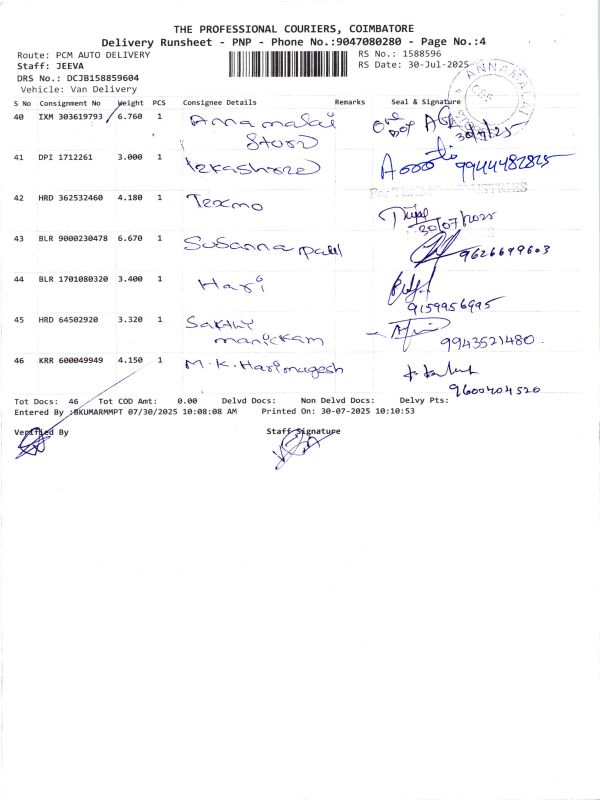 THE PROFESSIONAL COURIERS, COIMBATORE
Delivery Runsheet - PNP - Phone No.:9047080280 - Page No.:4
Route: PCM AUTO DELIVERY
RS No.: 1588596
Staff: JEEVA
RS Date: 30-Jul-2025
DRS No.: DCJB158859604
Vehicle: Van Delivery
ANNAMALAI
S No Consignment No Weight PCS Consignee Details Remarks Seal & Signature
40 IXM 303619793 6.760 1 Annamalai
Stores
30/7/25
41 DPI 1712261 3.000 1 9944482825
42 HRD 362532460 4.180 1 Texmo
30/07/2025
43 BLR 9000230478 6.670 1 Susanna paul 9626699603
44 BLR 1701080320 3.400 1 Hari
9159956995
45 HRD 64502920 3.320 1 Sakthi
manickam 9943521480
46 KRR 600049949 4.150 1 M.K.Harimugesh
9600404520
Tot Docs: 46 Tot COD Amt: 0.00 Delvd Docs: Non Delvd Docs: Delvy Pts:
Entered By :BKUMARMMPT 07/30/2025 10:08:08 AM Printed On: 30-07-2025 10:10:53
Verified By Staff Signature